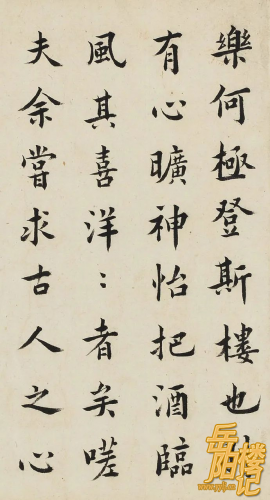 樂何極登斯樓也
有心曠神怡把酒臨
風其喜洋﹕者矣嗟
夫余嘗求古人之心
岳阳楼记